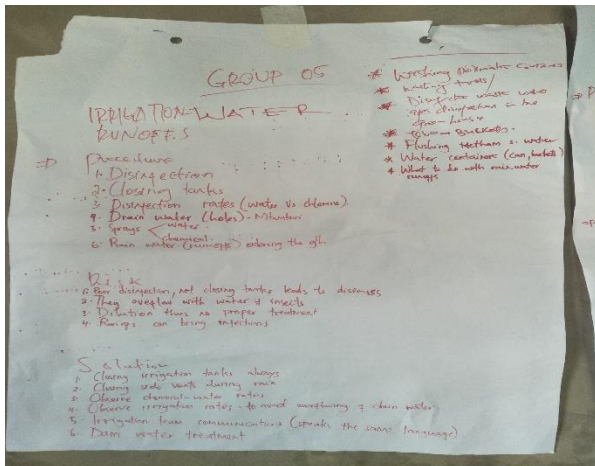 GROUP 05
IRRIGATION-WATER
RUNOFFS
=> Procedure
1. Disinfection
2. Closing tanks
3. Disinfection rates (water vs chlorine).
4. Drain water (holes).
5. Sprays < water
chemical.
6. Rain water (runoffs) entering the g/h.
Risk
1. Poor disinfection, not closing tanks leads to diseases
2. They overflow with water & insects
3. Dilution thus no proper treatment
4. Runoffs can bring infections
Solution
1. Closing irrigation tanks always
2. Closing side vents during rain
3. Observe chemical-water rates
4. Observe irrigation rates - to avoid overflowing & drain water
5. Irrigation team communications (speaks the same language)
6. Dam water treatment
* Washing
* washing
* waste water
disinfection in the
* Buckets.
* Flushing Methods & water
* Water containers (can, buckets)
* What to do with rain water
runoffs